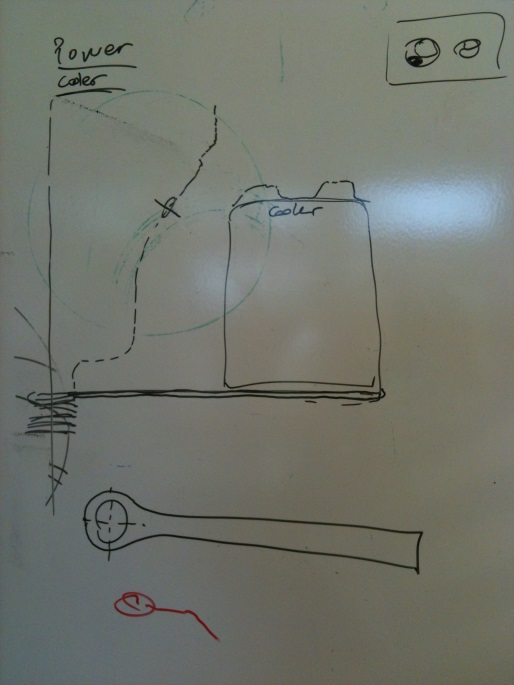 Power
cooler
cooler